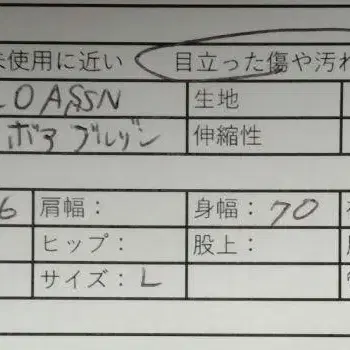 未使用に近い 目立った傷や汚れ
LO ASSN 生地
ボア ブルゾン 伸縮性
6 肩幅： 身幅：70
ヒップ： 股上：
サイズ：L